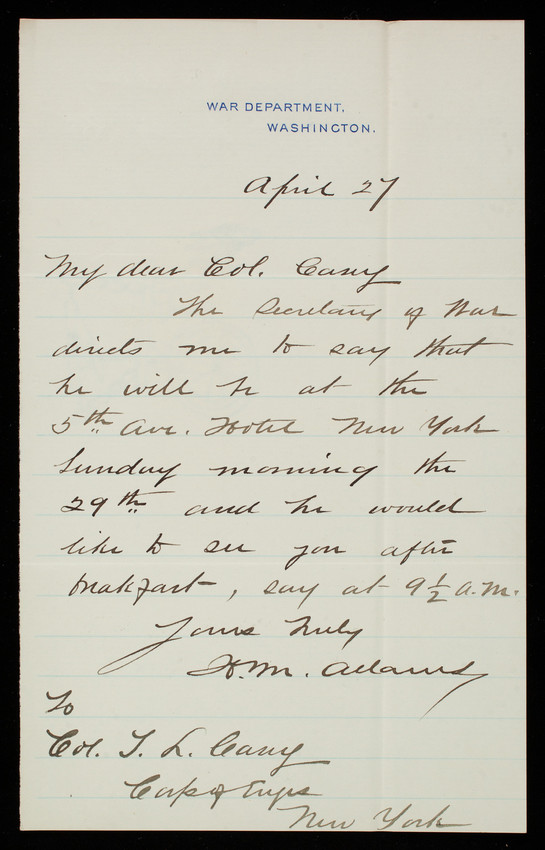 WAR DEPARTMENT,
WASHINGTON.
April 27
My dear Col. Casey
The Secretary of War
directs me to say that
he will be at the
5th Ave. Hotel New York
Sunday morning the
29th and he would
like to see you after
breakfast, say at 9½ a.m.
Yours truly
H.M. Adams
To
Col. T. L. Casey
Corps of Engrs
New York